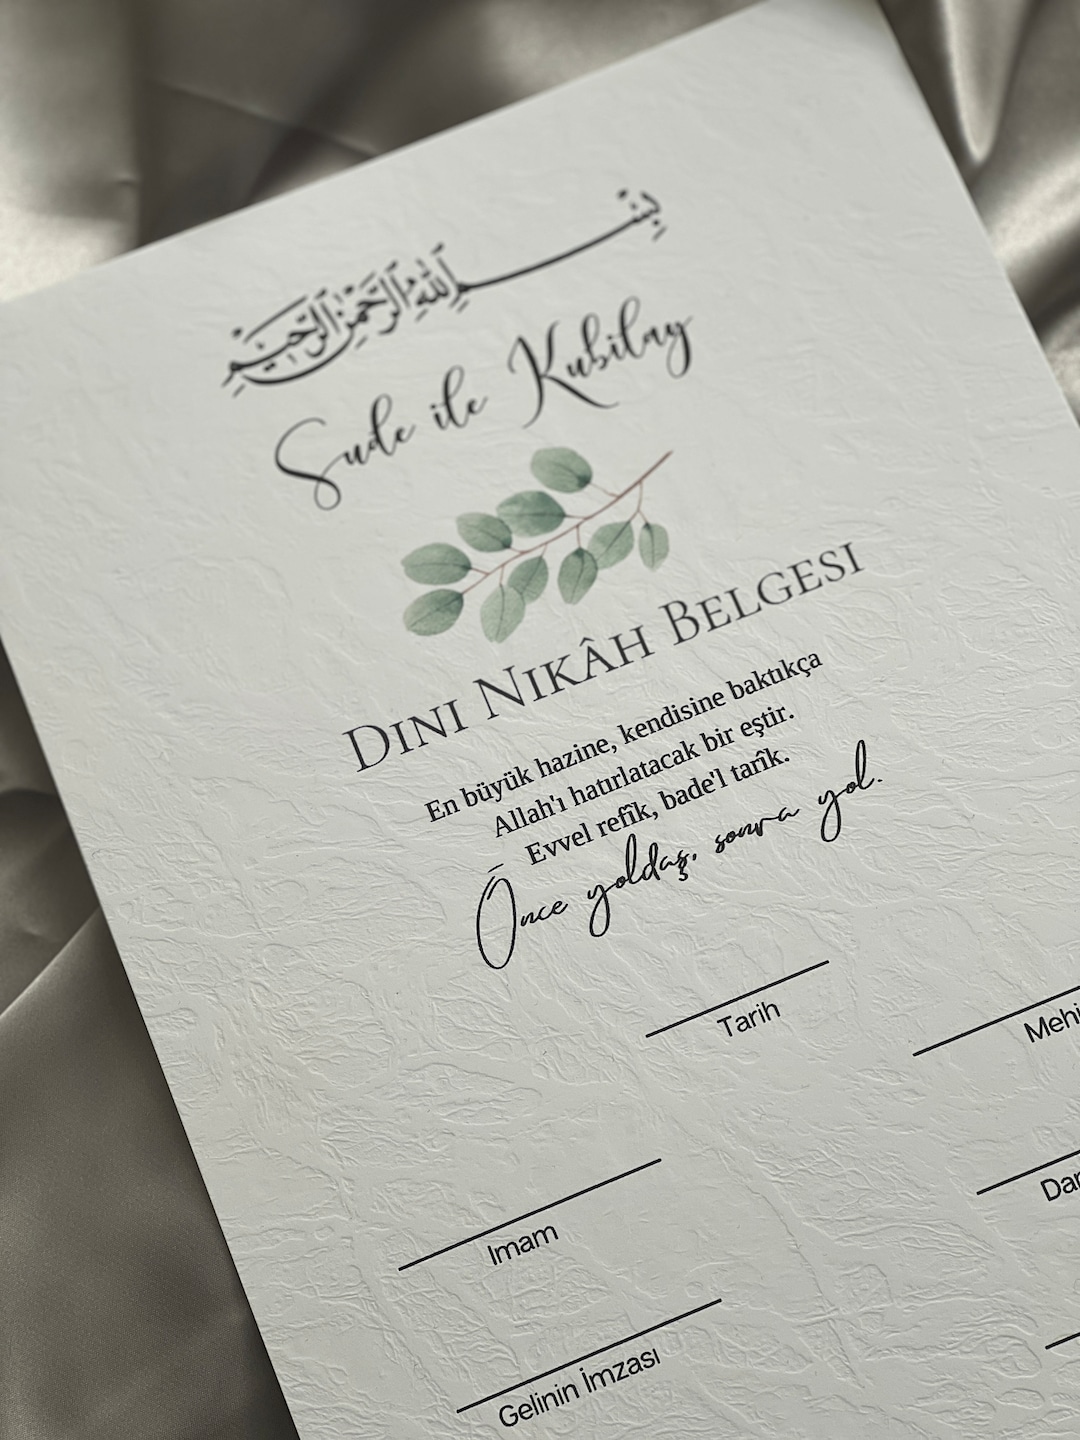 بِسْمِ اللهِ الرَّحْمٰنِ الرَّحِيْمِ
Sude ile Kubilay
DINI NIKÂH BELGESI
En büyük hazine, kendisine baktıkça
Allah'ı hatırlatacak bir eştir.
Evvel refîk, bade'l tarîk.
Önce yoldaş, sonra yol.
Tarih
Mehi
Imam
Dar
Gelinin İmzası